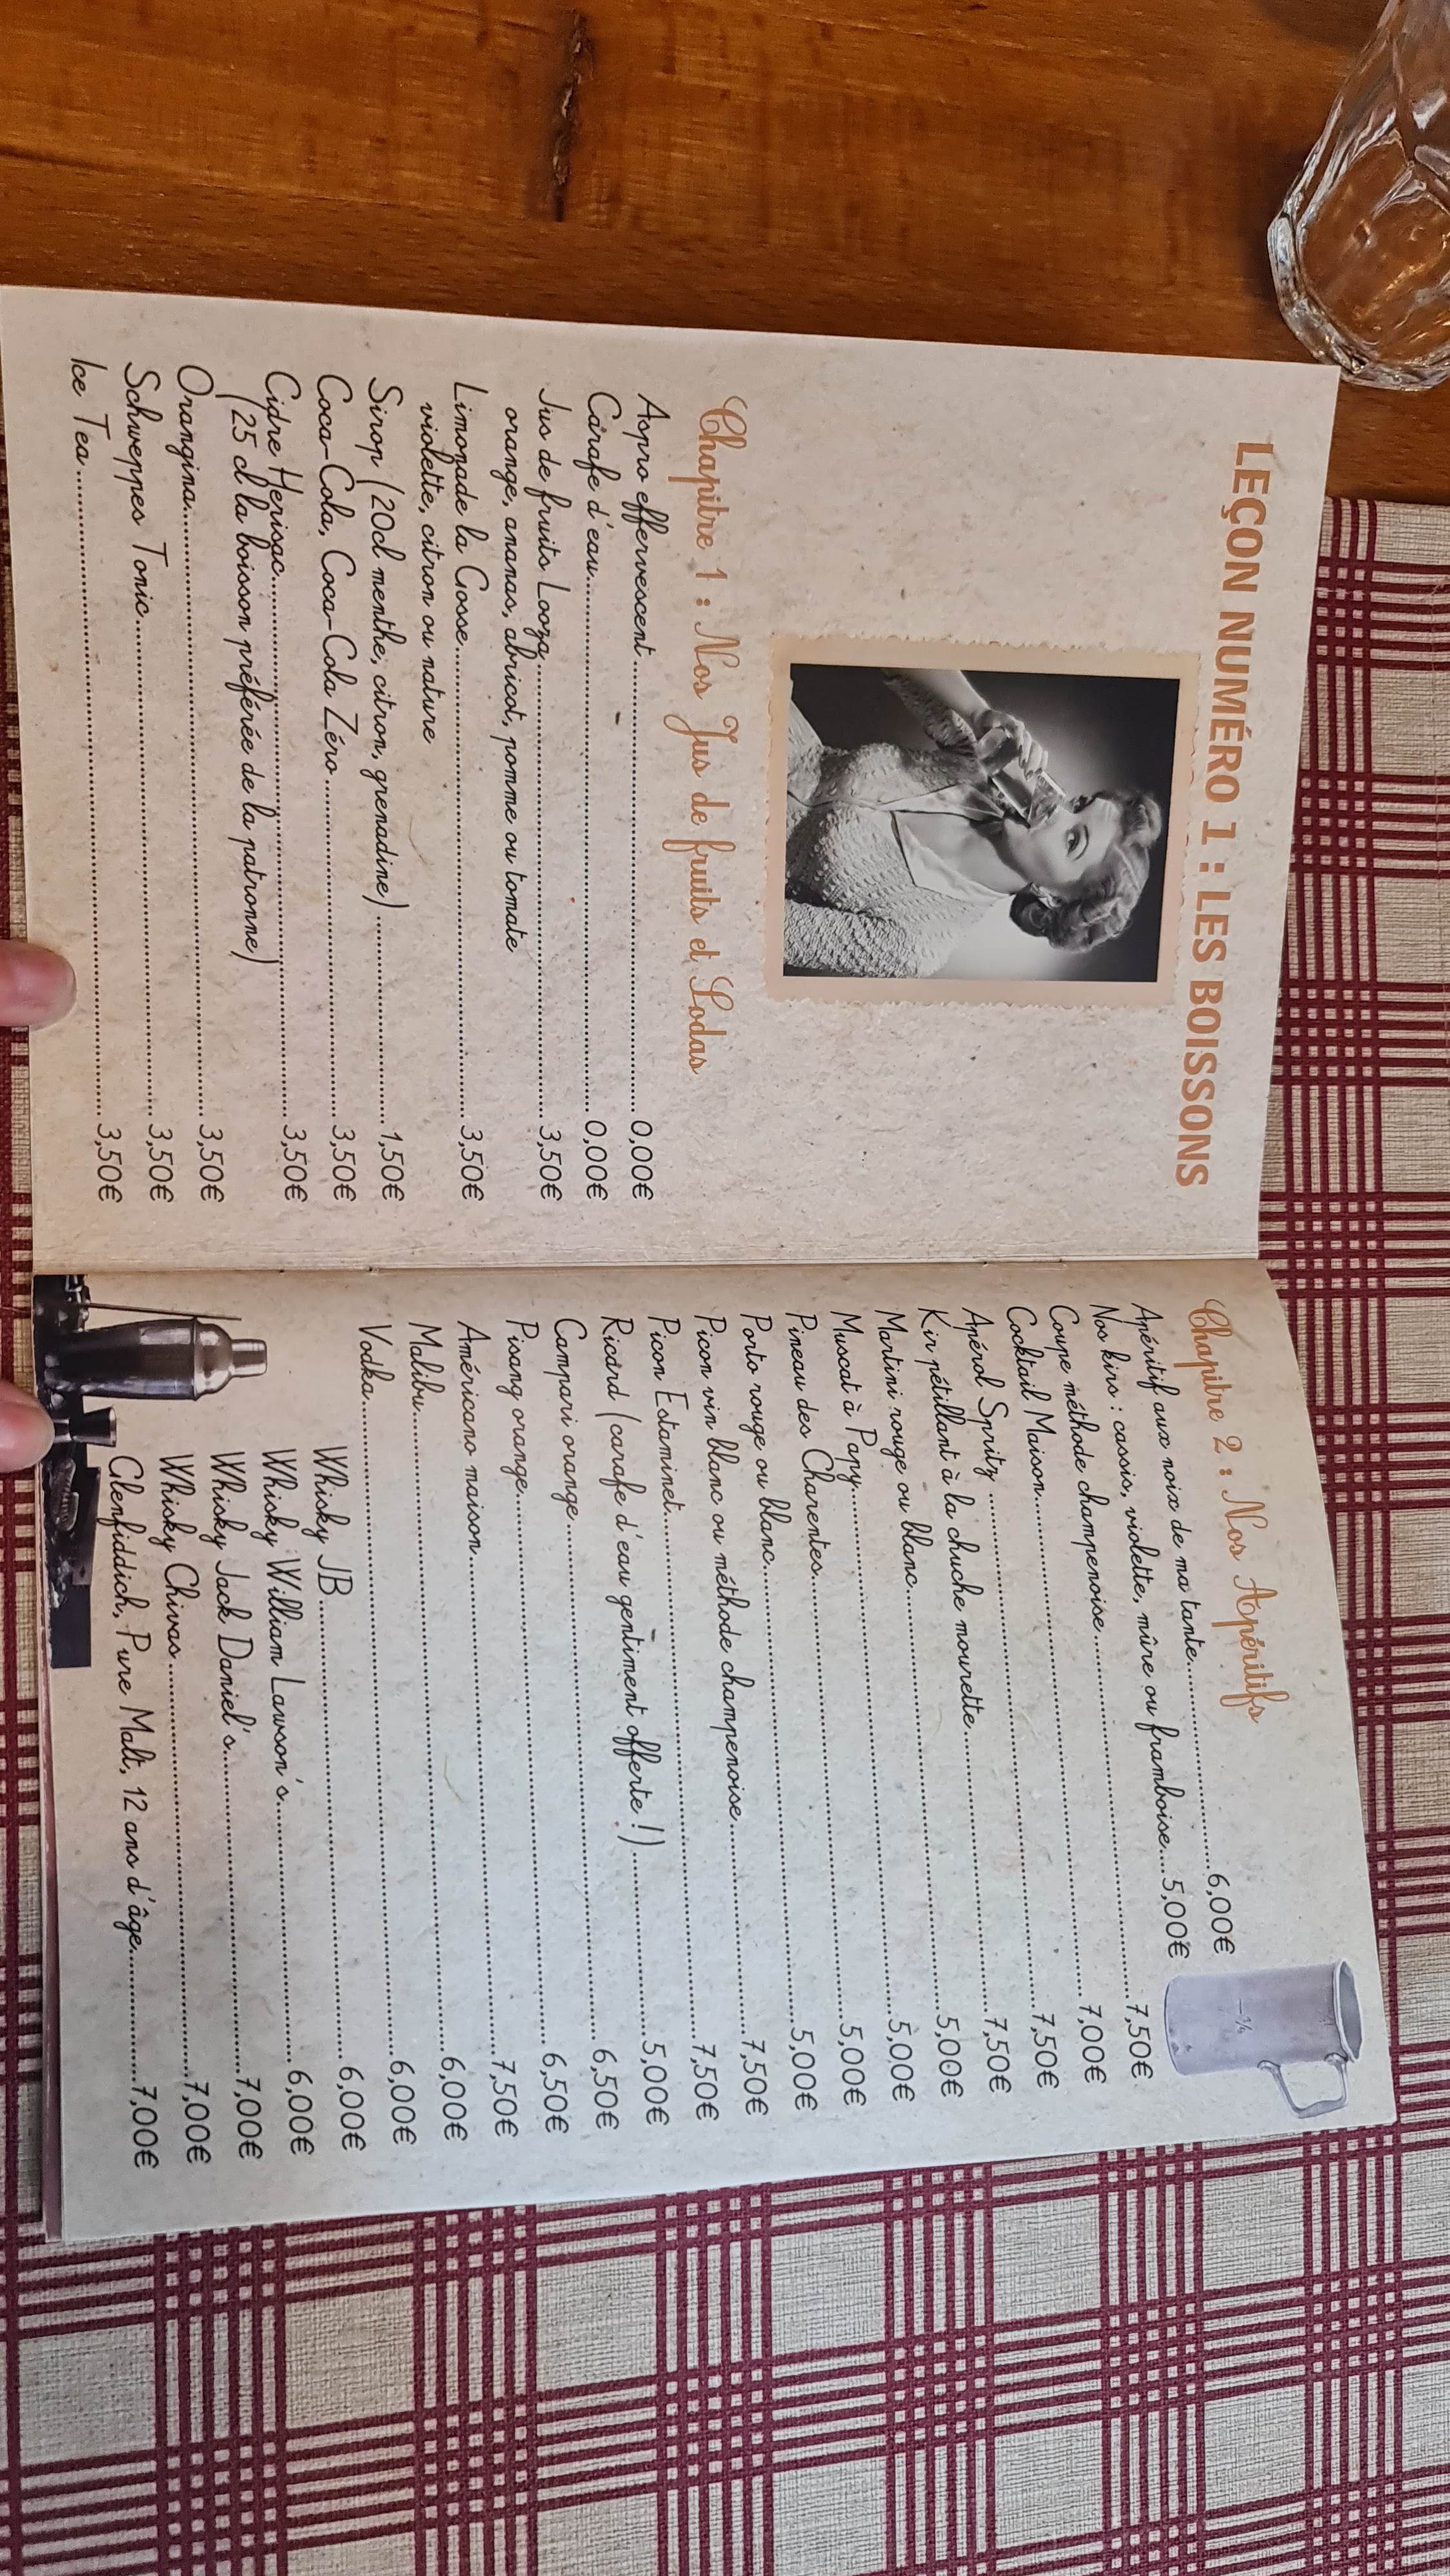 LEÇON NUMÉRO 1 : LES BOISSONS
Chapitre 1 : Nos Jus de fruits et Sodas
Aspro effervescent 0,00€
Carafe d'eau 0,00€
Jus de fruits Looza 3,50€
orange, ananas, abricot, pomme ou tomate
Limonade la Gosse 3,50€
violette, citron ou nature
Sirop (20cl menthe, citron, grenadine) 1,50€
Coca-Cola, Coca-Cola Zéro 3,50€
Cidre Herisac 3,50€
(25 cl la boisson préférée de la patronne)
Orangina 3,50€
Schweppes Tonic 3,50€
Ice Tea 3,50€
Chapitre 2 : Nos Apéritifs
Apéritif aux noix de ma tante 6,00€
Nos kirs : cassis, violette, mûre ou framboise 5,00€
Coupe méthode champenoise 7,50€
Cocktail Maison 7,00€
Apérol Spritz 7,50€
Kir pétillant à la chuche mourette 7,50€
Martini rouge ou blanc 5,00€
Muscat à Papy 5,00€
Pineau des Charentes 5,00€
Porto rouge ou blanc 5,00€
Picon vin blanc ou méthode champenoise 7,50€
Picon Estaminet 7,50€
Ricard (carafe d'eau gentiment offerte !) 5,00€
Campari orange 6,50€
Pisang orange 6,50€
Américano maison 7,50€
Malibu 6,00€
Vodka 6,00€
Whisky JB 6,00€
Whisky William Lawson's 6,00€
Whisky Jack Daniel's 7,00€
Whisky Chivas 7,00€
Glenfiddich, Pure Malt, 12 ans d'âge 7,00€